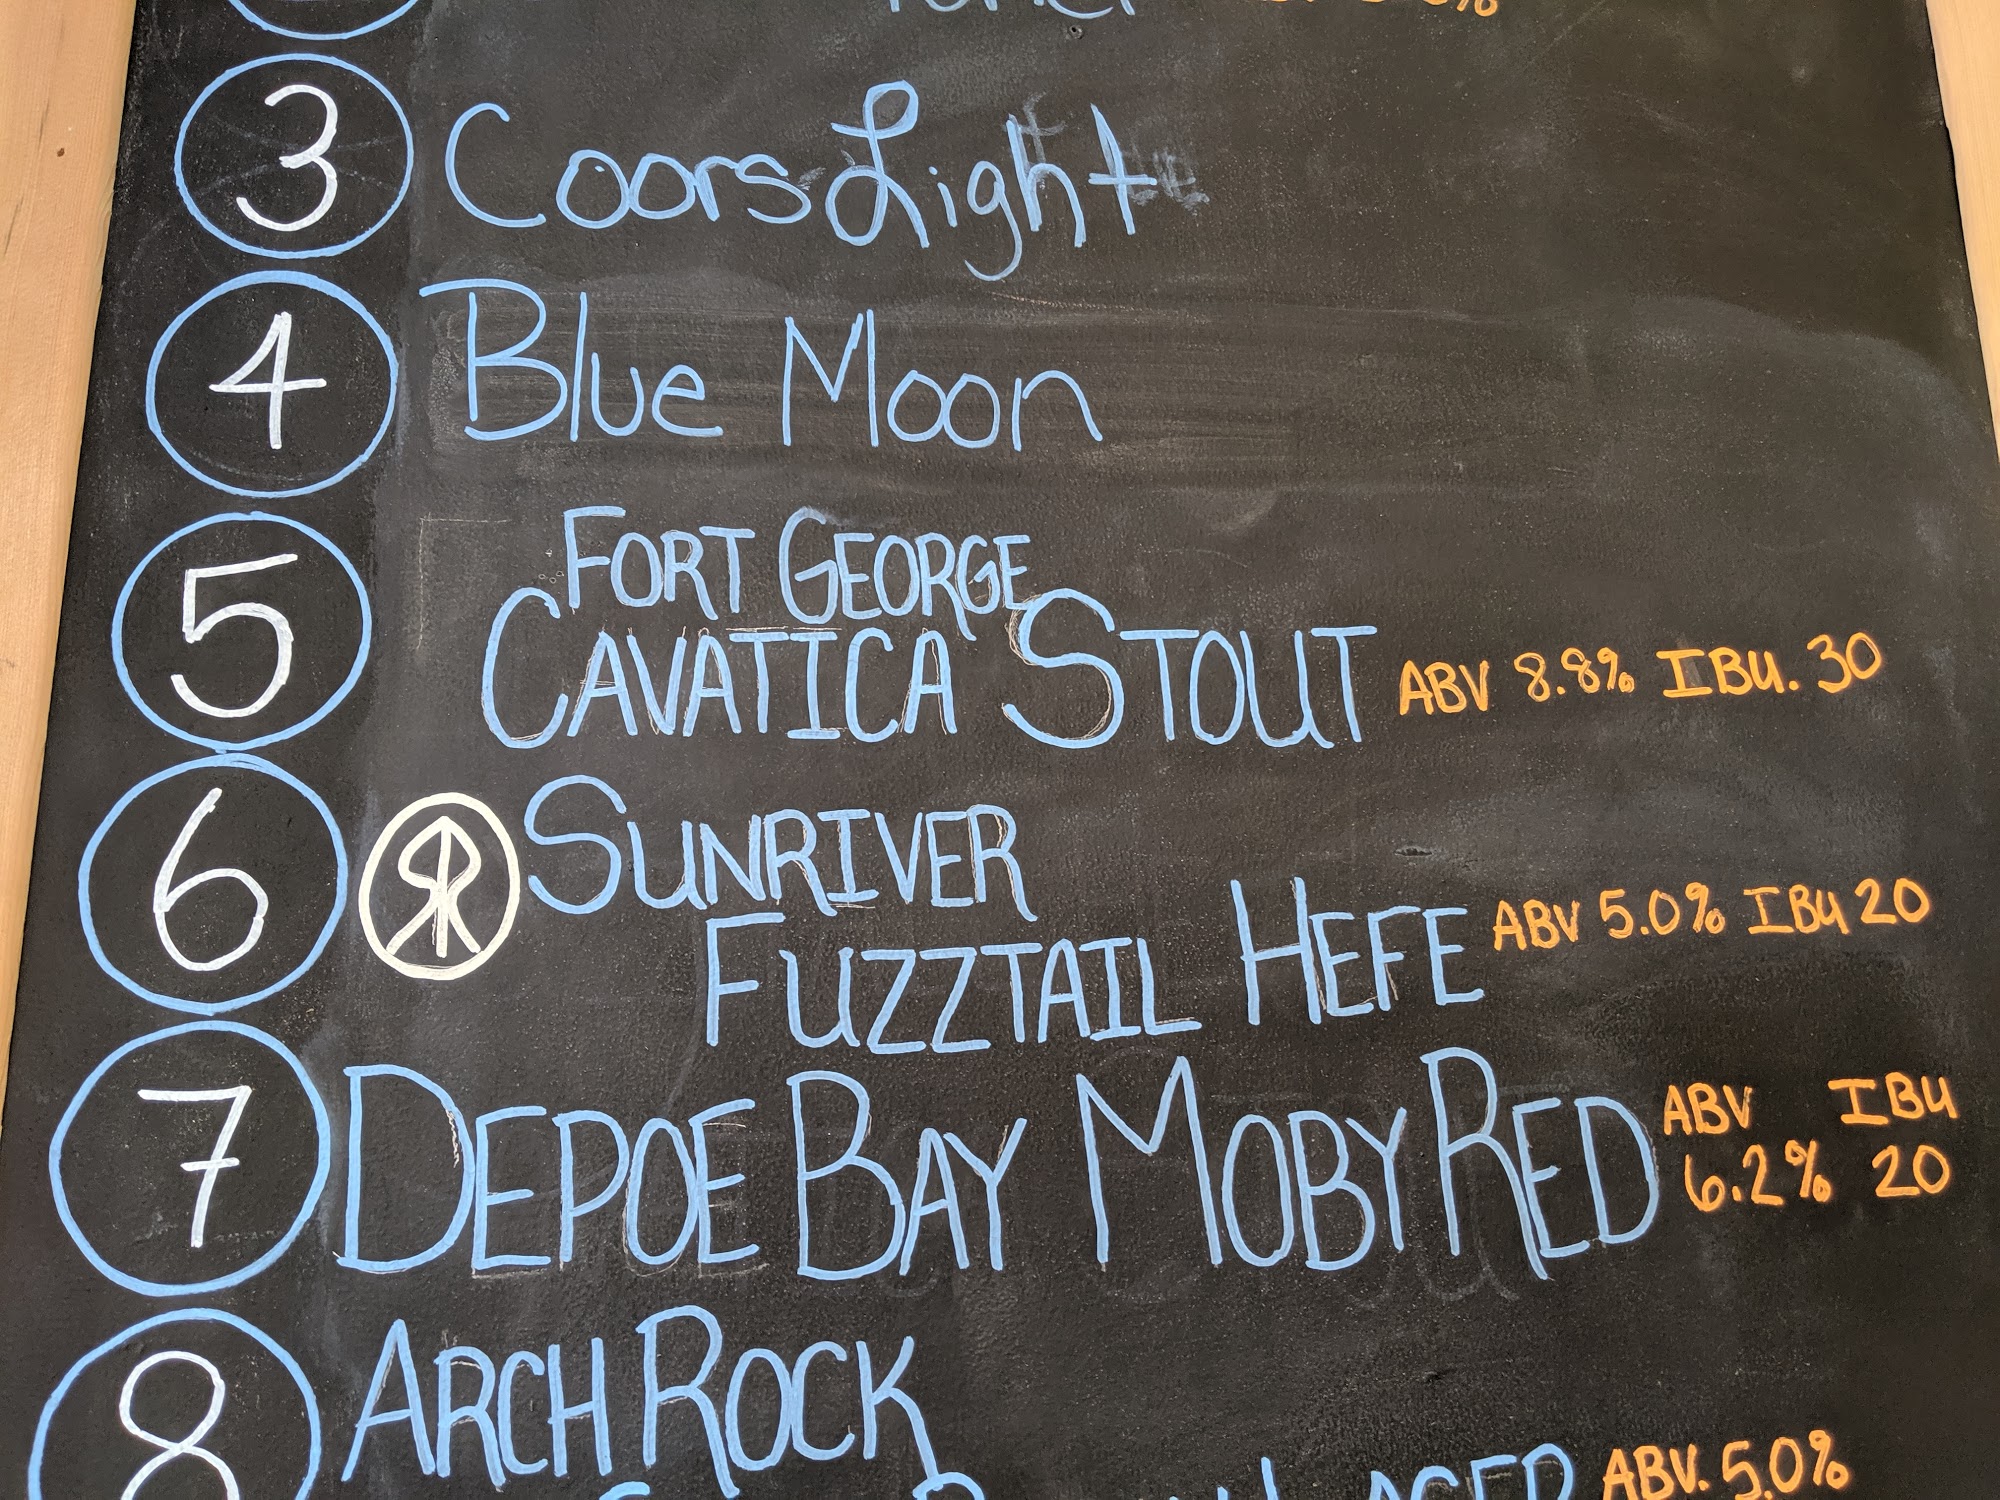 3 Coors Light
4 Blue Moon
5 FORT GEORGE
CAVATICA STOUT ABV 8.8% IBU. 30
6 SUNRIVER
FUZZTAIL HEFE ABV 5.0% IBU 20
7 DEPOE BAY MOBY RED ABV 6.2% IBU 20
8 ARCH ROCK
LAGER ABV. 5.0%